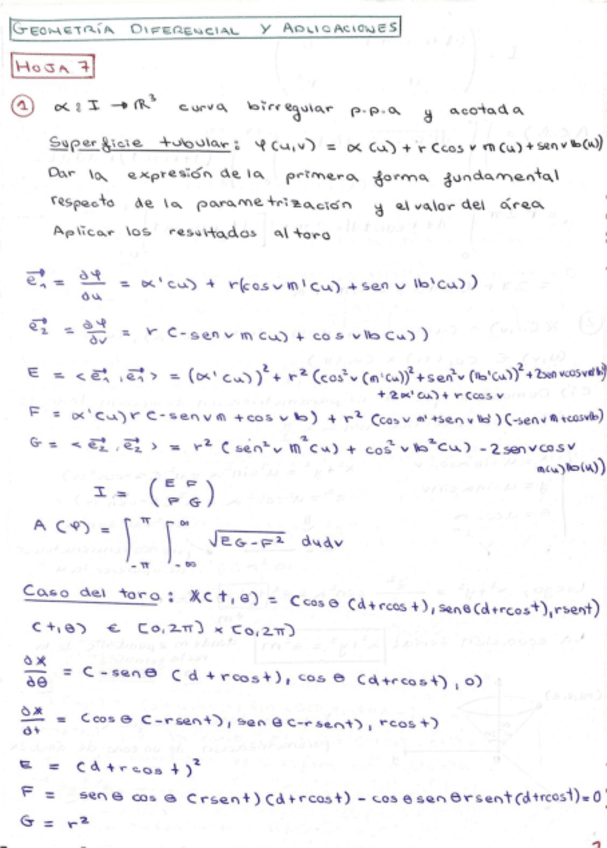 GEOMETRÍA DIFERENCIAL Y APLICACIONES
HOJA 7
① α: I → ℝ³ curva birregular p.p.a y acotada
Superficie tubular: φ(u,v) = α(u) + r(cos v n(u) + sen v b(u))
Dar la expresión de la primera forma fundamental
respecto de la parametrización y el valor del área
Aplicar los resultados al toro
e₁⃗ = ∂φ/∂u = α'(u) + r(cos v n'(u) + sen v b'(u))
e₂⃗ = ∂φ/∂v = r(-sen v n(u) + cos v b(u))
E = <e₁⃗, e₁⃗> = (α'(u))² + r²(cos² v (n'(u))² + sen² v (b'(u))² + 2sen v cos v n' b')
+ 2α'(u) + r(cos v
F = α'(u) r(-sen v n + cos v b) + r² (cos v n' + sen v b')(-sen v n + cos v b)
G = <e₂⃗, e₂⃗> = r² (sen² v n²(u) + cos² v b²(u) - 2 sen v cos v
n(u) b(u))
I = (E F
F G)
A(φ) = ∫_{-π}^{π} ∫_{-∞}^{∞} √EG-F² du dv
Caso del toro: X(t,θ) = (cos θ (d+r cos t), sen θ (d+r cos t), r sen t)
(t,θ) ∈ [0,2π] × [0,2π]
∂X/∂θ = (-sen θ (d+r cos t), cos θ (d+r cos t), 0)
∂X/∂t = (cos θ (-r sen t), sen θ (-r sen t), r cos t)
E = (d+r cos t)²
F = sen θ cos θ (r sen t)(d+r cos t) - cos θ sen θ r sen t (d+r cos t) = 0
G = r²